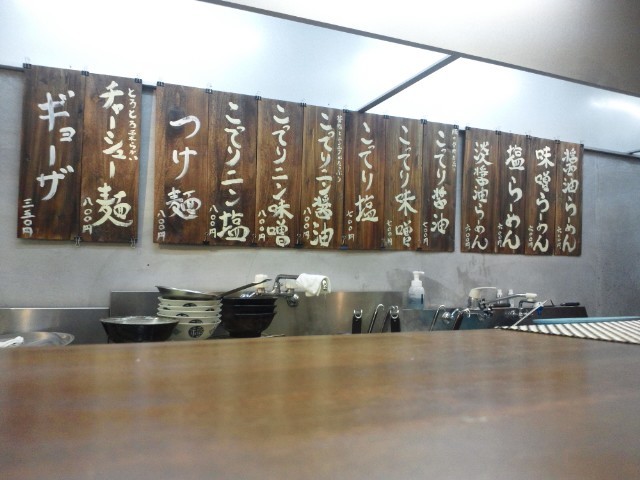 醤油らーめん
六〇〇円
味噌らーめん
七〇〇円
塩らーめん
六〇〇円
淡醤油らーめん
六〇〇円
こってり醤油
七〇〇円
こってり味噌
七〇〇円
こってり塩
七〇〇円
こってりニンニク醤油
八〇〇円
こってりニン味噌
八〇〇円
こってりニン塩
八〇〇円
つけ麺
八〇〇円
とろとろ柔らかい
チャーシュー麺
八〇〇円
ギョーザ
三五〇円